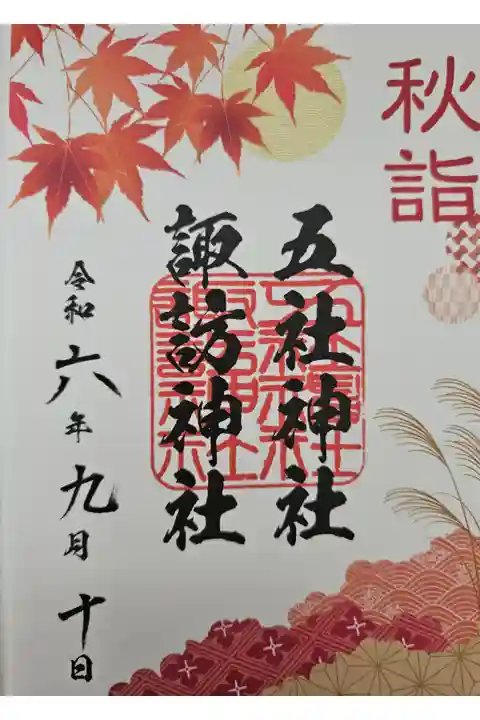 秋詣
五社神社
諏訪神社
令和六年九月十日